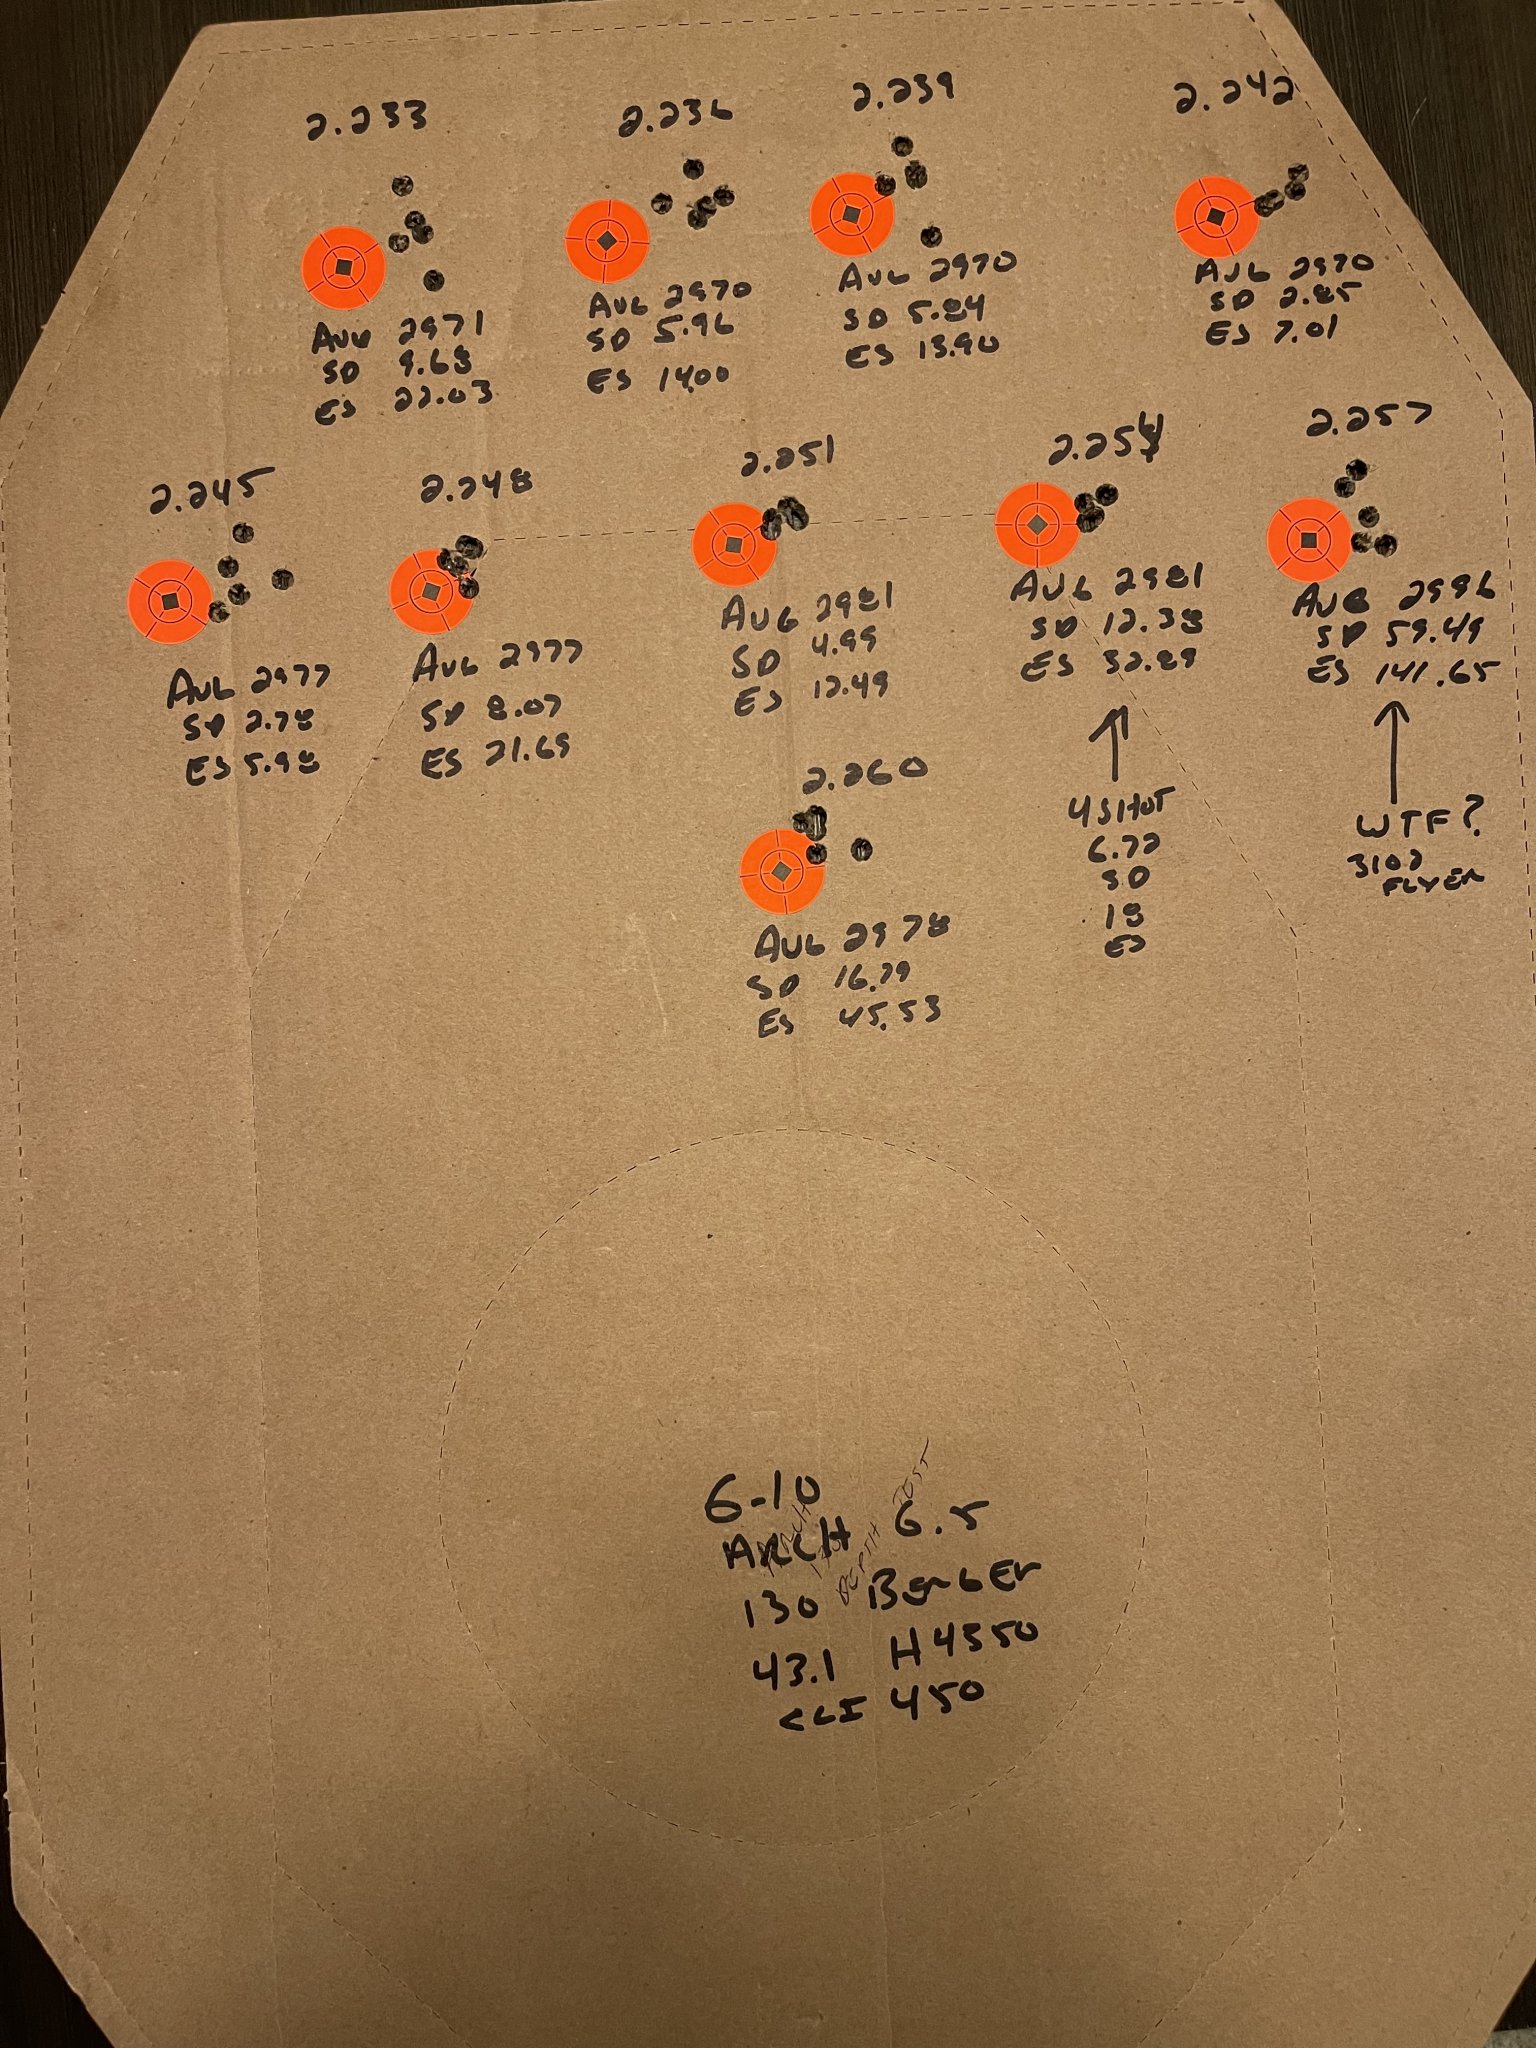 2.233
2.236
2.239
2.242
AVG 2971
SD 9.68
ES 22.03
AVG 2970
SD 5.96
ES 14.00
AVG 2970
SD 5.84
ES 13.90
AVG 2970
SD 2.85
ES 7.01
2.245
2.248
2.251
2.254
2.257
AVG 2977
SD 2.78
ES 5.98
AVG 2977
SD 8.07
ES 21.69
AVG 2981
SD 4.99
ES 12.49
AVG 2981
SD 12.38
ES 32.89
4 SHOT
6.72
SD
18
ES
AVG 2996
SD 59.49
ES 141.65
WTF?
3102
FLYER
2.260
AVG 2978
SD 16.79
ES 45.53
6-10
ARCH 6.5
130 BERGER
43.1 H4350
CCI 450
DEPTH TEST